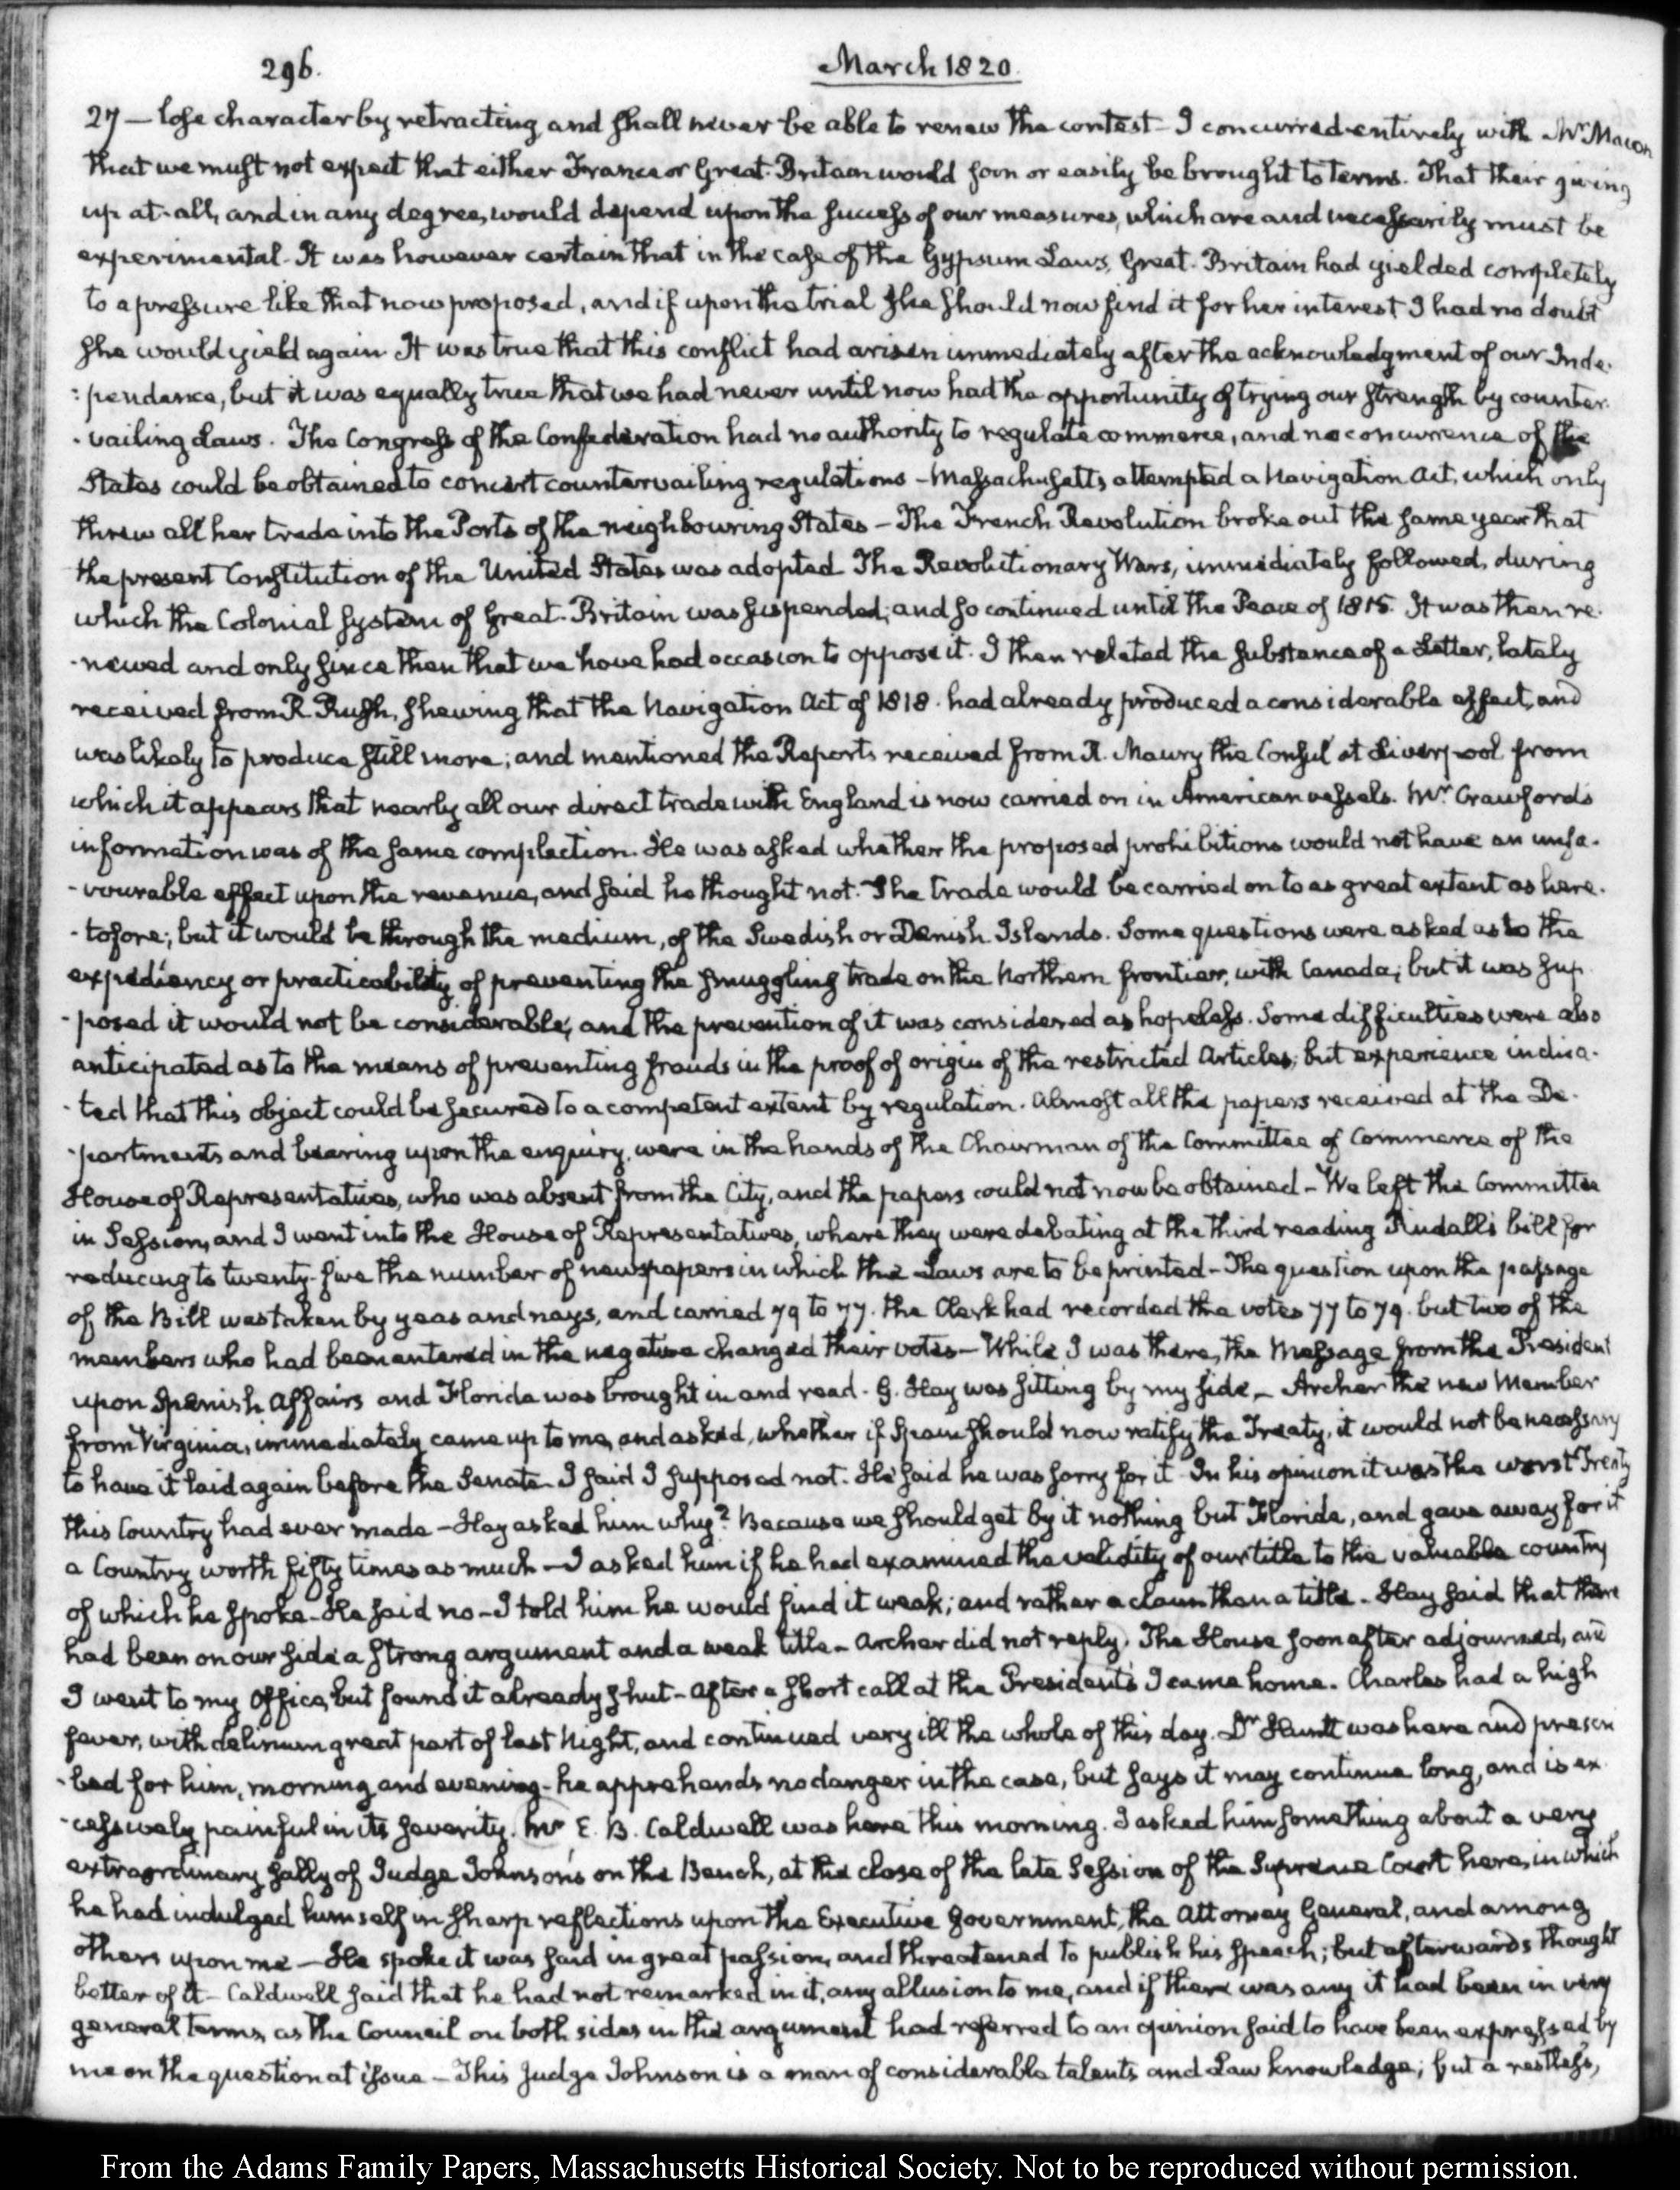 296.
March 1820.
27 — lose character by retracting and shall never be able to renew the contest - I concurred entirely with Mr Macon
that we must not expect that either France or Great-Britain would soon or easily be brought to terms. That their giving
up at-all, and in any degree, would depend upon the success of our measures, which are and necessarily must be
experimental - It was however certain that in the case of the Gypsum Laws, Great-Britain had yielded completely
to a pressure like that now proposed, and if upon the trial she should now find it for her interest I had no doubt
she would yield again. It was true that this conflict had arisen immediately after the acknowledgment of our Inde-
:pendence, but it was equally true that we had never until now had the opportunity of trying our strength by counter-
-vailing Laws. The Congress of the Confederation had no authority to regulate commerce, and no concurrence of the
States could be obtained to concert countervailing regulations - Massachusetts attempted a Navigation Act, which only
threw all her trade into the Ports of the neighbouring States - The French Revolution broke out the same year that
the present Constitution of the United States was adopted. The Revolutionary Wars, immediately followed, during
which the Colonial System of Great-Britain was suspended; and so continued until the Peace of 1815. It was then re-
-newed and only since then that we have had occasion to oppose it. I then related the substance of a Letter, lately
received from R. Rush, shewing that the Navigation Act of 1818. had already produced a considerable effect, and
was likely to produce still more; and mentioned the Reports received from R. Maury the Consul at Liverpool from
which it appears that nearly all our direct trade with England is now carried on in American vessels. Mr Crawford's
information was of the same complection. He was asked whether the proposed prohibitions would not have an unfa-
-vourable effect upon the revenue, and said he thought not. The trade would be carried on to as great extent as here-
-tofore; but it would be through the medium, of the Swedish or Danish Islands. Some questions were asked as to the
expediency or practicability of preventing the smuggling trade on the Northern frontier, with Canada; but it was sup-
-posed it would not be considerable; and the prevention of it was considered as hopeless. Some difficulties were also
anticipated as to the means of preventing frauds in the proof of origin of the restricted Articles; but experience indica-
-ted that this object could be secured to a competent extent by regulation. Almost all the papers received at the De-
-partments and bearing upon the enquiry, were in the hands of the Chairman of the Committee of Commerce of the
House of Representatives, who was absent from the City, and the papers could not now be obtained - We left the Committee
in Session, and I went into the House of Representatives, where they were debating at the third reading Rudall's bill for
reducing to twenty-five the number of newspapers in which the Laws are to be printed - The question upon the passage
of the Bill was taken by yeas and nays, and carried 79 to 77. the Clerk had recorded the votes 77 to 79. but two of the
members who had been entered in the negative changed their votes - While I was there, the Message from the President
upon Spanish Affairs and Florida was brought in and read. G. Hay was sitting by my side - Archer the new Member
from Virginia, immediately came up to me, and asked, whether if Spain should now ratify the Treaty, it would not be necessary
to have it laid again before the Senate. I said I supposed not. He said he was sorry for it. In his opinion it was the worst Treaty
this Country had ever made - Hay asked him why? Because we should get by it nothing but Florida, and gave away for it
a Country worth fifty times as much - I asked him if he had examined the validity of our title to the valuable country
of which he spoke - He said no - I told him he would find it weak; and rather a claim than a title - Hay said that there
had been on our side a strong argument and a weak title - Archer did not reply. The House soon after adjourned, and
I went to my Office, but found it already shut - After a short call at the President's I came home. Charles had a high
fever, with delirium great part of last Night, and continued very ill the whole of this day. Dr Huntt was here and prescri
-bed for him, morning and evening - he apprehends no danger in the case, but says it may continue long, and is ex-
-cessively painful in its severity. Mr E. B. Caldwell was here this morning. I asked him something about a very
extraordinary sally of Judge Johnson's on the Bench, at the close of the late Session of the Supreme Court here, in which
he had indulged himself in sharp reflections upon the Executive Government, the Attorney General, and among
others upon me — He spoke it was said in great passion, and threatened to publish his speech; but afterwards thought
better of it - Caldwell said that he had not remarked in it, any allusion to me, and if there was any it had been in very
general terms, as the Council on both sides in the argument had referred to an opinion said to have been expressed by
me on the question at issue - This Judge Johnson is a man of considerable talents and Law knowledge; but a restless,
From the Adams Family Papers, Massachusetts Historical Society. Not to be reproduced without permission.